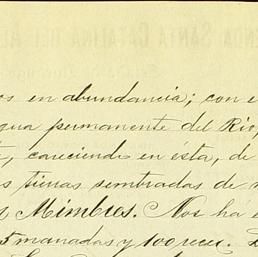 os en abundancia; con e
gua permanente del Rio,
, careciendo en ésta, de
s tierras sembradas de
Mimbres. Nos ha
5 manadas y 100 reces.